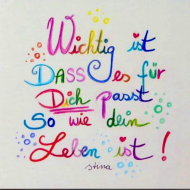 Wichtig ist
DASS es für
Dich passt
So wie dein
Leben ist !
stina